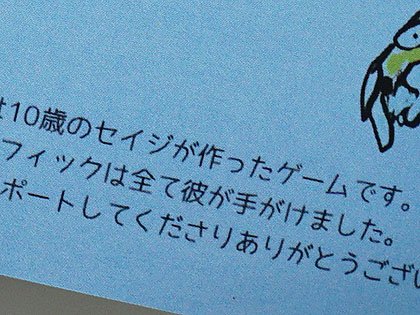 は10歳のセイジが作ったゲームです。
フィックは全て彼が手がけました。
ポートしてくださりありがとうござい